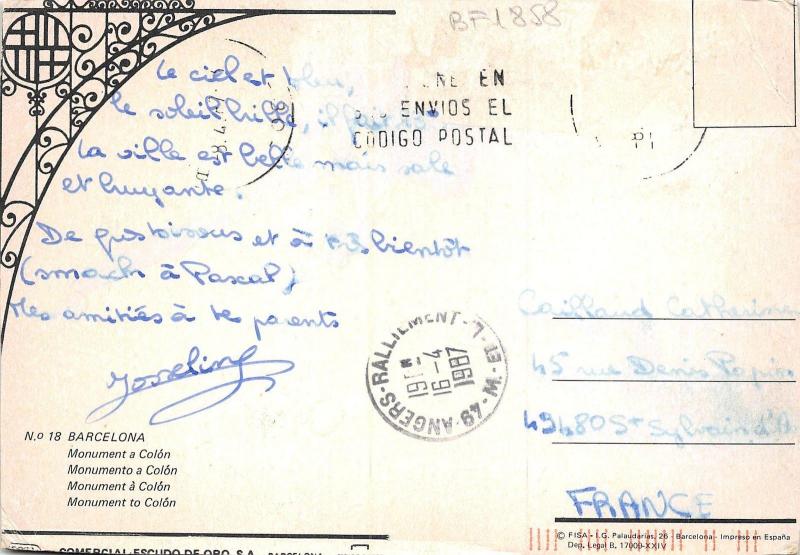 BF1858
Le ciel est bleu,
le soleil brille, il fait
La ville est belle mais sale
et bruyante.
De gros bisous et à très bientôt
(smack à Pascal)
Mes amitiés à tes parents
Josseling
NE EN
ENVIOS EL
CODIGO POSTAL
ANGERS-RALLIEMENT - M-49
16-4
1987
Caiffaud Catherine
45 rue Denis Papin
49480 St Sylvain d'A
FRANCE
N.o 18 BARCELONA
Monument a Colón
Monumento a Colón
Monument à Colón
Monument to Colón
COMERCIAL-ESCUDO DE ORO, S.A.
© FISA - I.G. Palaudarias, 26 - Barcelona - Impreso en España
Dep. Legal B. 17009-XXIV